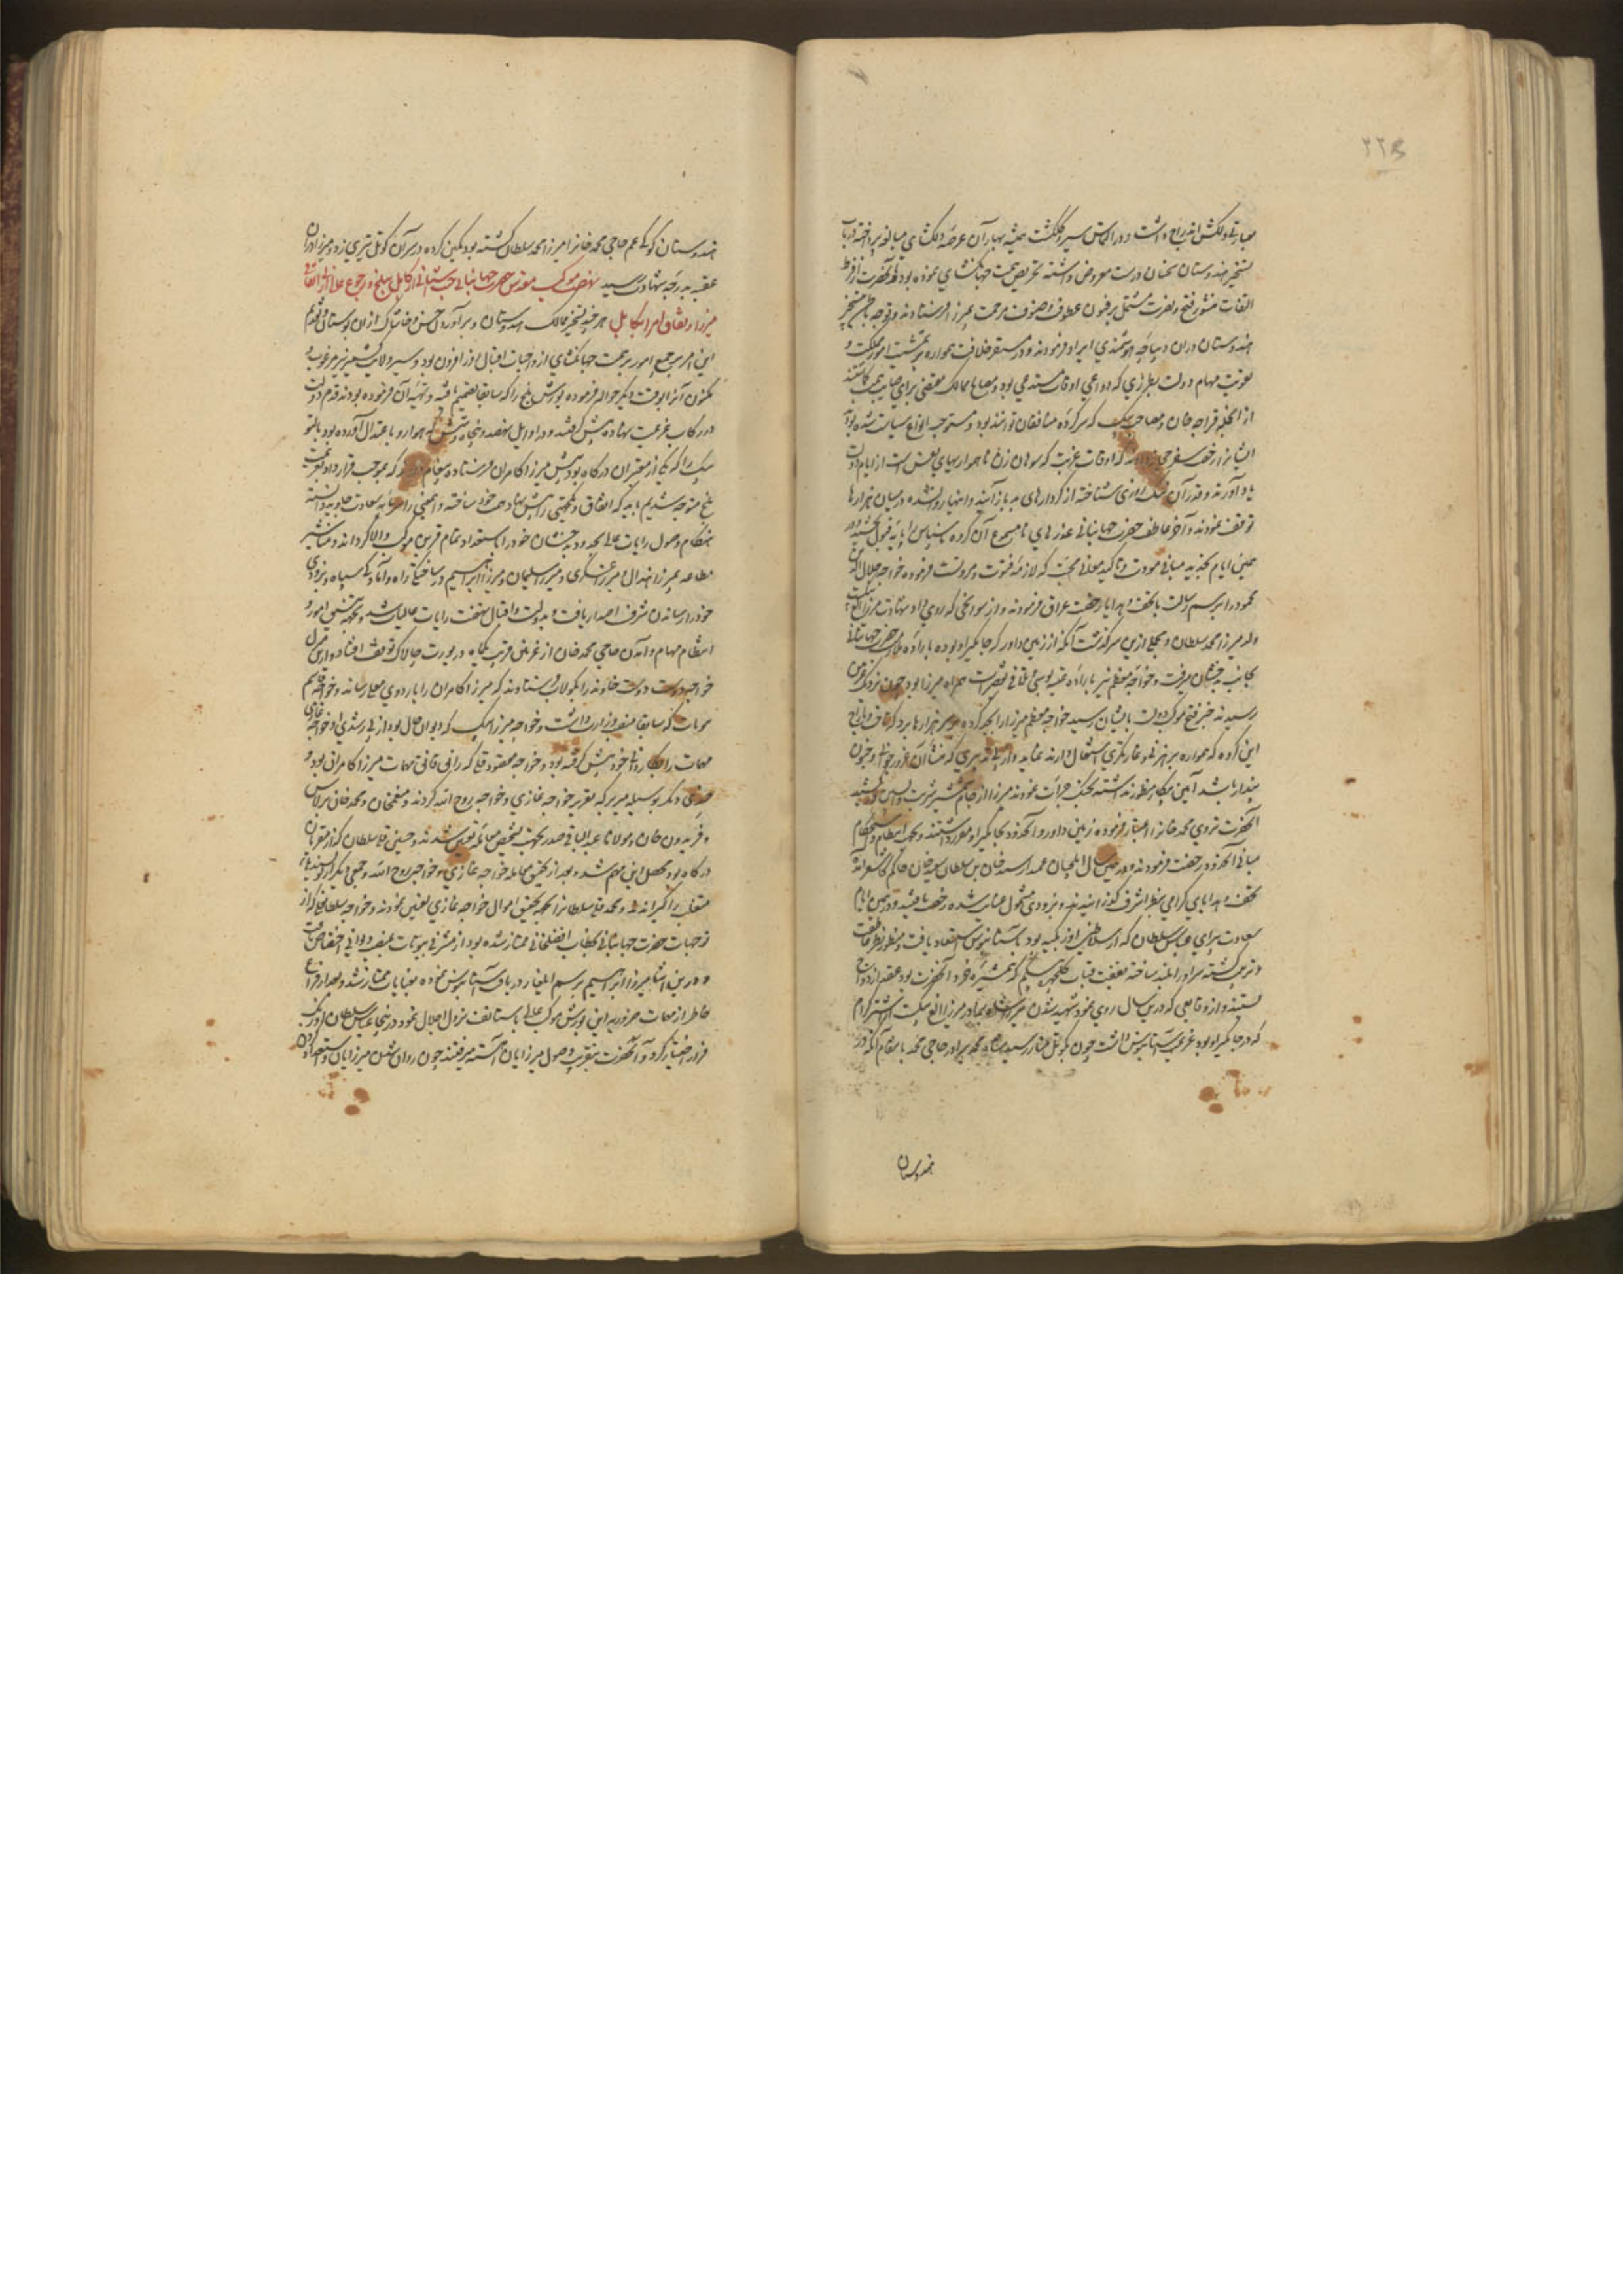 ۲۲۵
بتسخیر هندوستان سخنان درست معروض داشته تحریص همت جهانگشای نموده بود آنحضرت از فرط
التفات منشور فتح و نصرت مشتمل بر فنون عطوفت و صنوف مرحمت بمیرزا فرستادند و توجه بتسخیر
هندوستان در آن دیباچه هوشمندی ایراد فرمودند و در مستقر خلافت همواره بتمشیت امور مملکت و
تقویت مهام دولت بطرزی که دواعی اوقات مستدعی بود و مصالح ممالک مقتضی برای صایب همت گماشتند
از آنجمله قراجه خان و مصاحب بیک که سرکرده منافقان تواند بود و مستوجب انواع سیاست شده بود
ایشانرا رخصت سفر حجاز دادند که اوقات غربت که سوهان زن ناهمواریهای نفس است از ایام دولت
یاد آورند و قدر آن شناخته از کردارهای بد باز آیند و اینها روانه شده در میان هزارها
توقف نمودند و آخر عاطفت حضرت جهانبانی عذرهای نامسموع آن گروه ناسپاس را پایه قبول بخشید و در
همین ایام بجهت مبانی مودت و تاکید معانی محبت که لازمه فتوت و مروت است فرموده خواجه جلال الدین
محمود را برسم رسالت با تحف و هدایا رخصت عراق فرمودند و از سوانحی که روی داد شهادت میرزا الغ بیک
ولد میرزا محمد سلطان و مجملی ازین سرگذشت آنکه از زمین داور که جایگیر او بوده باراده ملازمت حضرت جهانبانی
بجانب بدخشان میرفت و خواجه معظم نیز باراده عتبه بوسی و تلافی تقصیرات همراه میرزا بود چون نزدیک غزنین
رسیدند خبر فتح موکب دولت بایشان رسید خواجه معظم میرزا را بجد کرده بر سر هزارها برد که تاخت و تاراج
این گروه که همواره برهزنی و غارتگری اشتغال دارند نماید و از بی تدبیری که منشأ آن غرور جوانی و جنون
پندار باشد آیین پیکار منظور نداشته بجنگ جرأت نمودند میرزا از جام شمشیر شربت واپسین کشید
آنحضرت تردی محمد خانرا اعتبار فرموده زمین داور و آنحدود بجایگیر او مقرر داشتند و بجهت انتظام و استحکام
مبانی آنحدود رخصت فرمودند و در همین سال ایلچیان عبدالرشید خان بن سلطان سعید خان حاکم کاشغر آمده
تحف و هدایای گرامی بنظر اشرف گذرانیدند و بزودی مشمول عنایت شده رخصت یافتند و در همین ایام
سعادت پیرای عباس سلطان که از سلاطین اوزبکیه بود بآستانبوس استسعاد یافت و منظور نظر عاطفت
و تربیت گشته سر او را بلند ساخته بعفت قباب گلچهره بیگم که همشیره خرد آنحضرت بود عقد ازدواج
بستند و از وقایعی که درین سال روی نمود شهید شدن میرزا شاه برادر میرزا الغ بیک است از اشترکرام
که در جایگیر او بود عزیمت آستانبوس داشت چون بکوتل منار رسید شاه محمد برادر حاجی محمد بانتقام آنکه در
هندوستان
هندوستان کوکی عم حاجی محمد خانرا میرزا محمد سلطان کشته بود کمین کرده در سر آن کوتل تیری زد و میرزا در آن
عقبه بدرجه شهادت رسید نهضت موکب مقدس حضرت جهانبانی جنت آشیانی از کابل ببلخ و رجوع عالی از بی اتفاقی
میرزا و نفاق امرا بکابل هر چند تسخیر ممالک هندوستان و برآوردن خس و خاشاک از آن بوستان و تقدیم
این امر بر جمیع امور بر همت جهانگشای از واجبات اقبال روز افزون بود و سیر ولایت کشمیر نیز مرغوب و
مکنون آنرا بوقت دیگر حواله فرموده یورش بلخ را که سابقا تصمیم یافته و تهیه آن فرموده بودند قدم دولت
در رکاب عزیمت نهاده پیش گرفتند و در اوایل نهصد و پنجاه و شش که هوا رو باعتدال آورده بود بالتو
بیک را که یکی از معتبران درگاه بود پیش میرزا کامران فرستاده پیغام دادند که بموجب قرارداد بعزیمت
بلخ متوجه شدیم باید که اتفاق و یکجهتی را پیش نهاد همت خود ساخته و اینمعنی را سرمایه سعادت جاوید دانسته
هنگام وصول رایات عالی بحدود بدخشان خود را باستعداد تمام قرین موکب والا گرداند و مناشیر
مطاعه بمیرزا هندال و میرزا عسکری و میرزا سلیمان و میرزا ابراهیم در ساختگی یراق و آمادگی سپاه و بزودی
خود را رسانیدن شرف اصدار یافت و بدولت و اقبال نهضت رایات عالیات شد و بجهت تمشیت امور و
انتظام مهام و آمدن حاجی محمد خان از غزنین قریب یکماه در یورت چالاک توقف افتاد و ازین منزل
خواجه دوست خاوند را بکولاب فرستادند که میرزا کامران را باردوی معلی رساند و خواجه قاسم
بیوتات که سابقا منصب وزارت داشت و خواجه میرزا بیک که دیوان حال بود از بی رشدی او خواجه غازی
مهمات را بکاردانی خود پیش گرفته بود و خواجه مقصود علی که رانی و فانی مهمات میرزا کامران بود و
جمعی دیگر بوسیله میر برکه تقریر خواجه غازی و خواجه روح الله کردند و منعم خان و محمد خانی برلاس
و فریدون خان و مولانا عبدالباقی صدر بجهت تشخیص معامله تعیین شدند و حسین قلی سلطان که از مقربان
درگاه بود محصل این مهم شد و بعد از تحقیق معامله خواجه غازی و خواجه روح الله و جمعی دیگر از نویسندهای
متغلب را گیرانیدند و محمد قلی سلطانرا بجهت تحقیق اموال خواجه غازی تعیین نمودند و خواجه سلطان علی که از
توجهات حضرت جهانبانی بخطاب افضلخانی ممتاز شده بود از مشرفی بیوتات بمنصب دیوانی اختصاص یافت
و درین اثنا میرزا ابراهیم برسم ایلغار دریافت آستانبوس نموده بعنایات ممتاز شد و بعد از فراغ
خاطر از مهمات ضروریه این یورش موکب عالی باستالف نزول اجلال نمود در اینجا عباس سلطان اوزبک
فرار اختیار کرد و آنحضرت بتقریب وصول میرزایان آهسته میرفتند چون روان شدن میرزایان و استعداد